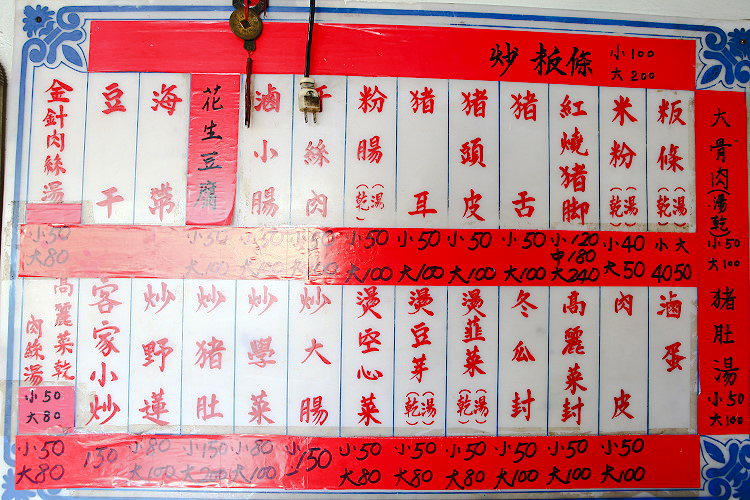 炒粄條
小100
大200
大骨肉(湯乾)
小50
大100
猪肚湯
小50
大100
粄條(湯乾)
小 大
40 50
米粉(湯乾)
小40
大50
紅燒猪脚
小120
中180
大240
猪舌
小50
大100
猪頭皮
小50
大100
猪耳
小50
大100
粉腸(湯乾)
小50
大100
絲肉
小50
滷小腸
小50
大100
花生豆腐
小50
大100
海帶
豆干
金針肉絲湯
小50
大80
滷蛋
肉皮
小50
大100
高麗菜封
小50
大100
冬瓜封
小50
大100
燙韮菜(湯乾)
小50
大80
燙豆芽(湯乾)
小50
大80
燙空心菜
小50
大80
炒大腸
150
炒學菜
小80
大100
炒猪肚
小150
大200
炒野蓮
小80
大100
客家小炒
130
高麗菜乾
肉絲湯
小50
大80
小50
大80